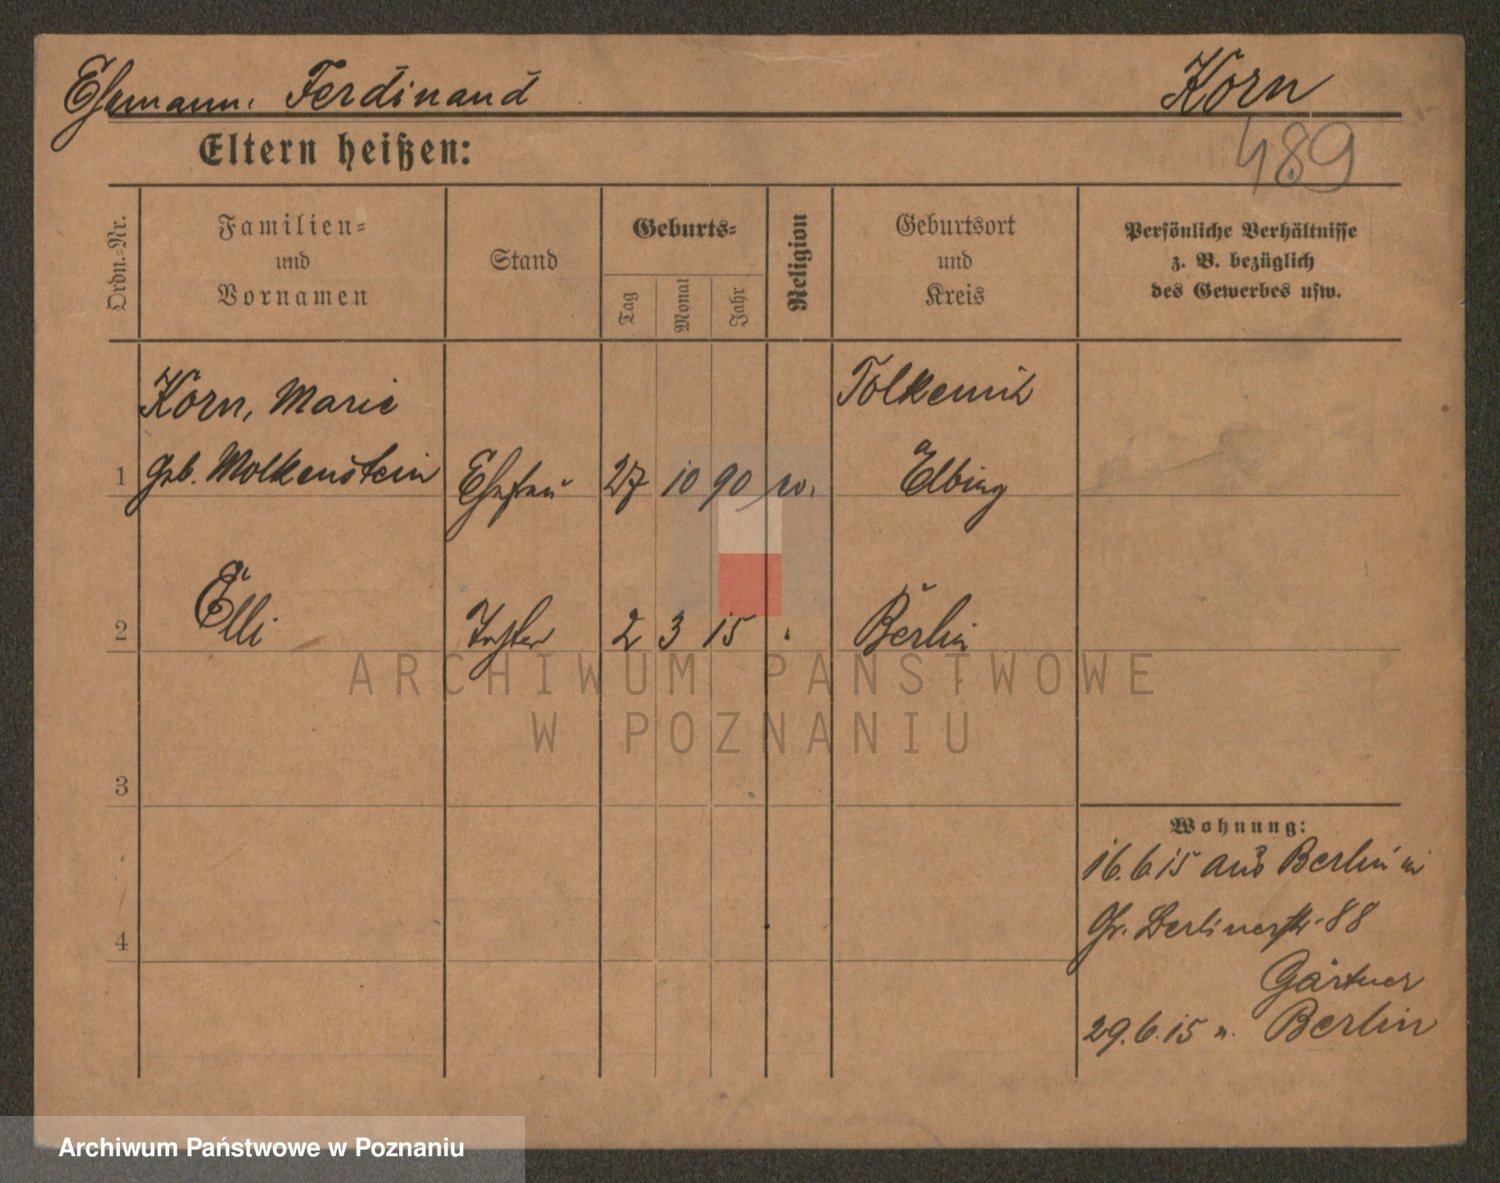 Ehemann: Ferdinand Korn
489
Eltern heißen:
Ordn.-Nr.
Familien-
und
Vornamen
Stand
Geburts-
Tag
Monat
Jahr
Religion
Geburtsort
und
Kreis
Persönliche Verhältnisse
z. B. bezüglich
des Gewerbes usw.
Korn, Marie Tolkemit
1 geb. Wolkenstein Ehefrau 27 10 90 Elbing
2 Elli Tochter 2 3 15 Berlin
3
4
Wohnung:
16.6.15 aus Berlin in
Gr. Berlinerstr. 88
Gärtner
29.6.15 n. Berlin
ARCHIWUM PAŃSTWOWE
W POZNANIU
Archiwum Państwowe w Poznaniu